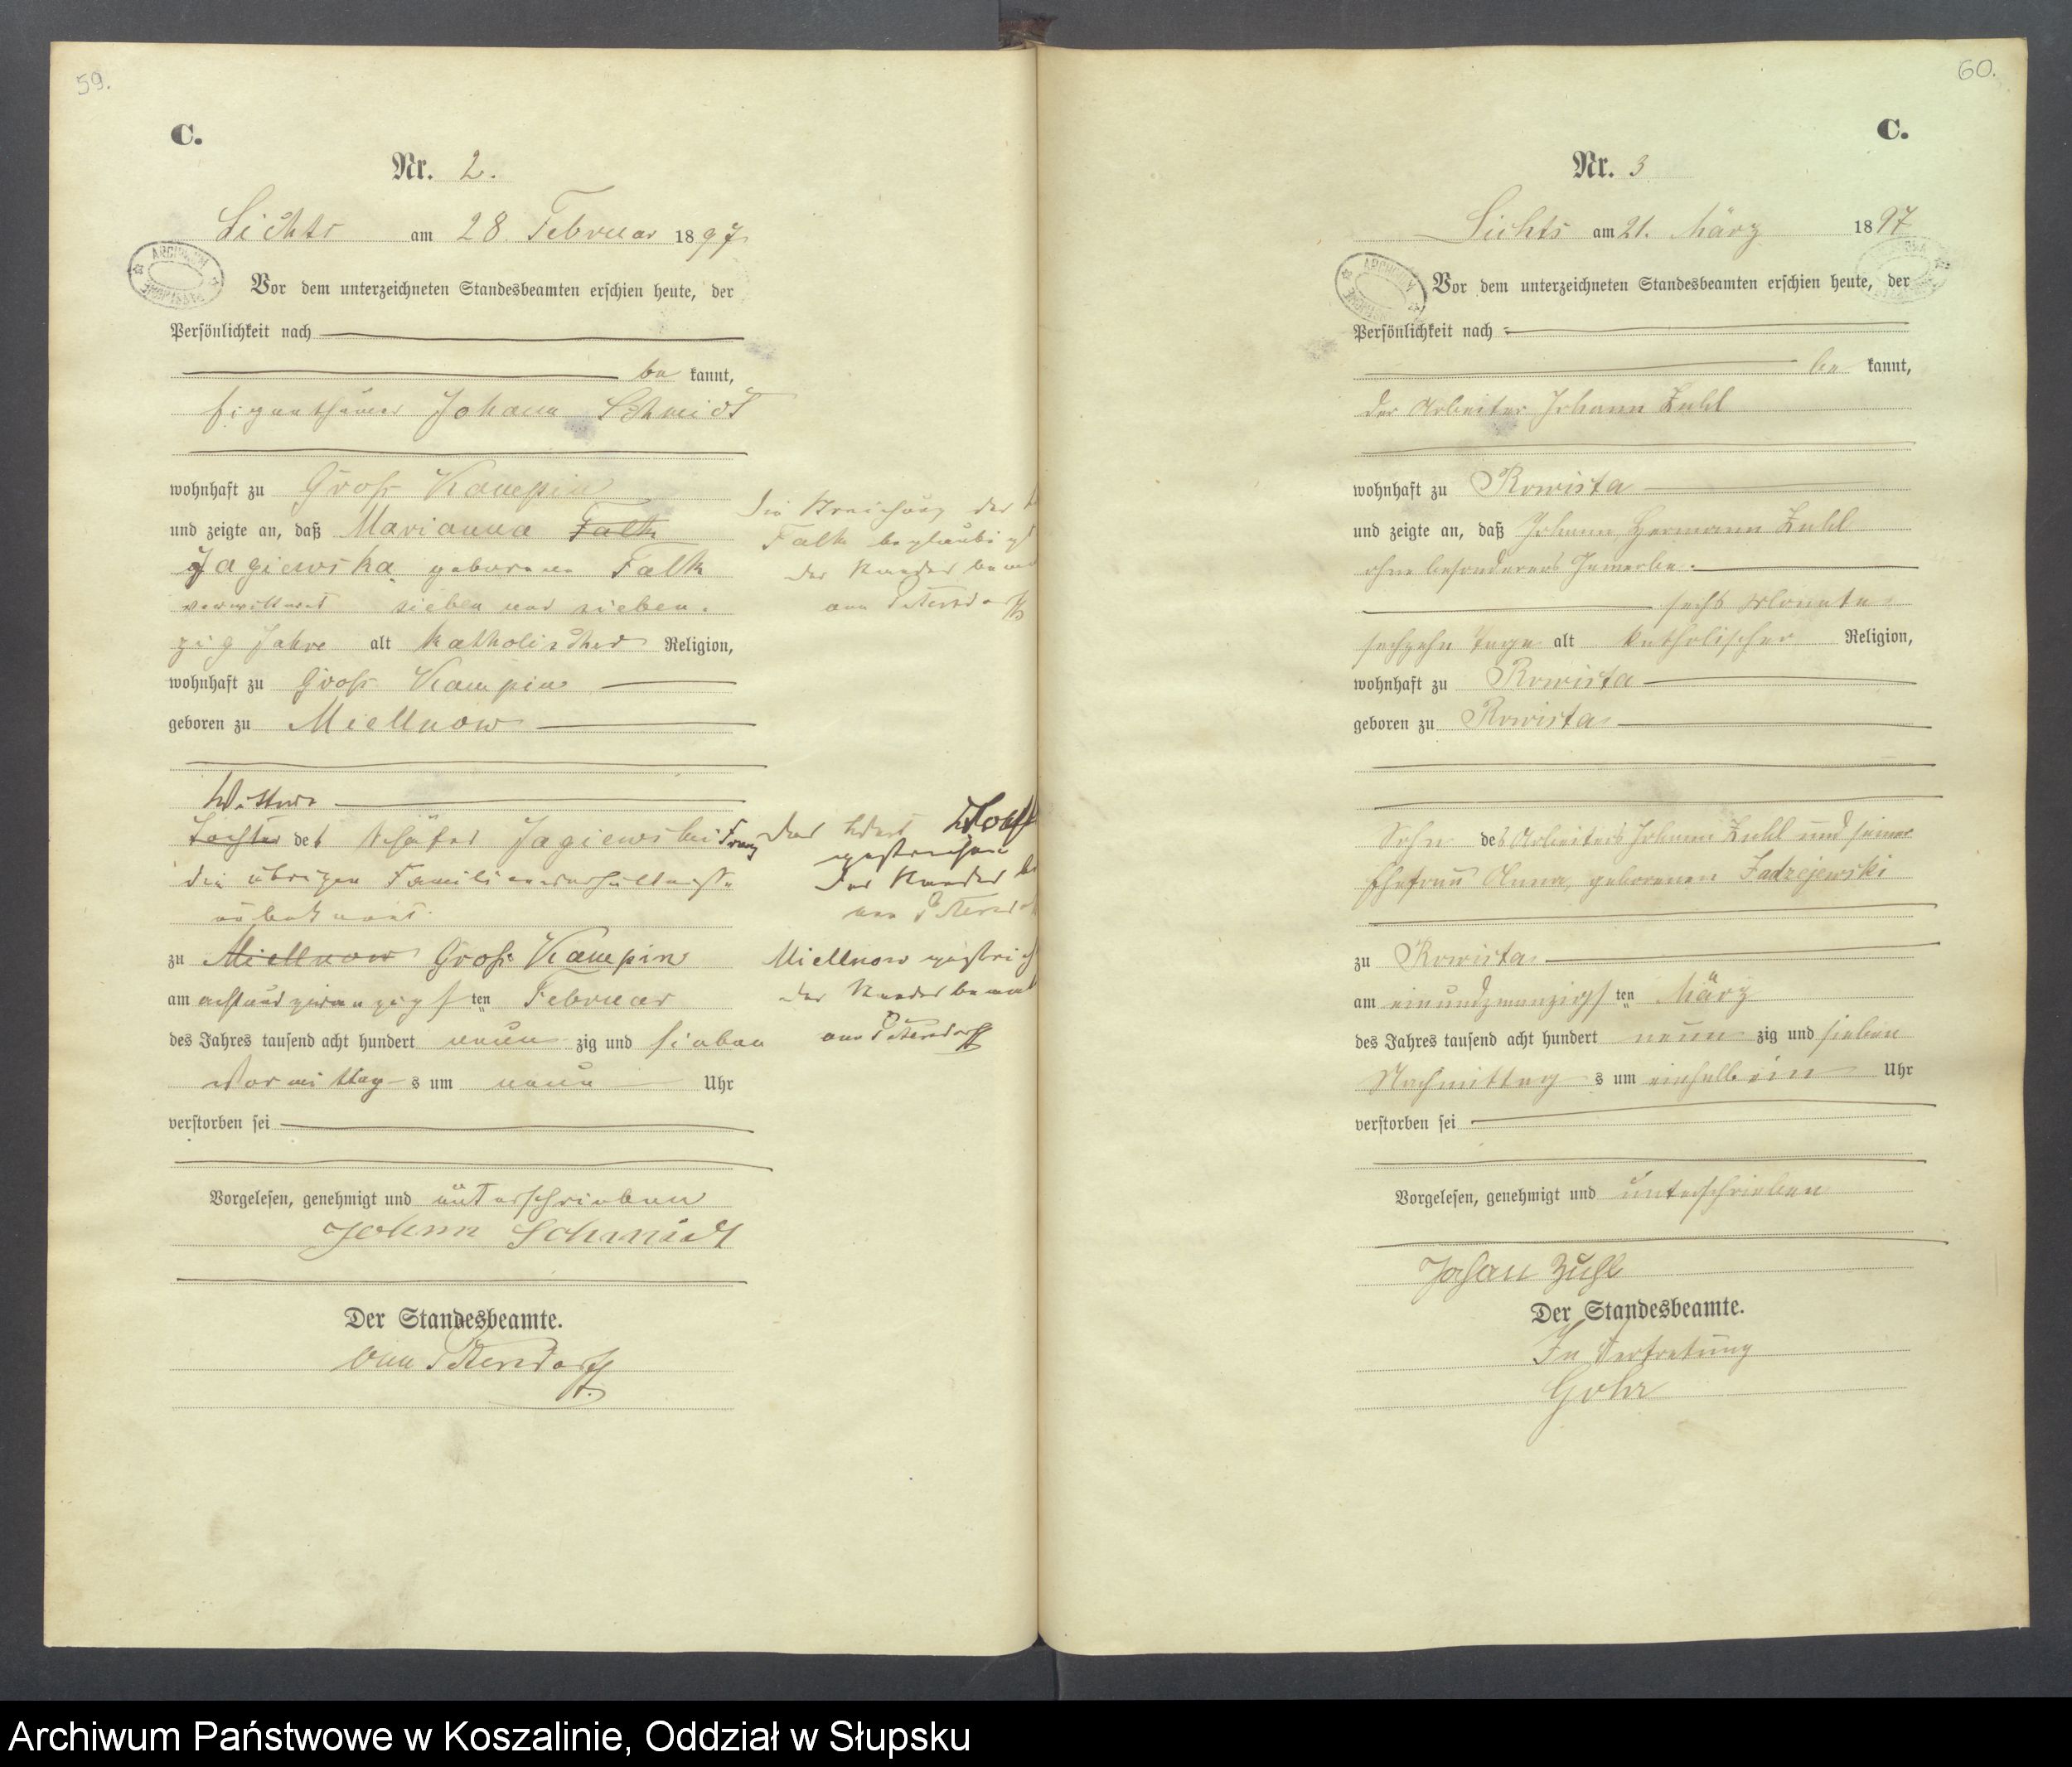 59.
C.
Nr. 2.
Lichts am 28. Februar 1897
Vor dem unterzeichneten Standesbeamten erschien heute, der
Persönlichkeit nach
be kannt,
Eigenthümer Johann Schmidt
wohnhaft zu Groß Kampin
und zeigte an, daß Marianna Falk
Jagiewska geborene Falk
verwittwet sieben und sieben-
zig Jahre alt katholischer Religion,
wohnhaft zu Groß Kampin
geboren zu Miellnow
Wittwe
Tochter des Schäfer Jagiewski Franz
die übrigen Familienverhältnisse
unbekannt.
zu Miellnow Groß Kampin
am achtundzwanzigsten Februar
des Jahres tausend acht hundert neun zig und sieben
Vormittag s um neun Uhr
verstorben sei
Vorgelesen, genehmigt und unterschrieben
Johann Schmidt
Der Standesbeamte.
von Petersdorff
Die Streichung des
Falk beglaubigt
Der Standesbeamte
von Petersdorff
Das Wort
gestrichen
Der Standesbe
von Petersdorff
Miellnow gestrich
der Standesbeamte
von Petersdorff
60.
C.
Nr. 3
Lichts am 21. März 1897
Vor dem unterzeichneten Standesbeamten erschien heute, der
Persönlichkeit nach
be kannt,
der Arbeiter Johann Zuhl
wohnhaft zu Rowista
und zeigte an, daß Johann Hermann Zuhl
ohne besonderes Gewerbe
sechs Monate
sechzehn Tage alt katholischer Religion,
wohnhaft zu Rowista
geboren zu Rowista
Sohn des Arbeiters Johann Zuhl und seiner
Ehefrau Anna, geborenen Jadzejewski
zu Rowista
am einundzwanzigsten März
des Jahres tausend acht hundert neun zig und sieben
Nachmittag s um einhalb ein Uhr
verstorben sei
Vorgelesen, genehmigt und unterschrieben
Johan Zuhl
Der Standesbeamte.
In Vertretung
Gohr
Archiwum Państwowe w Koszalinie, Oddział w Słupsku